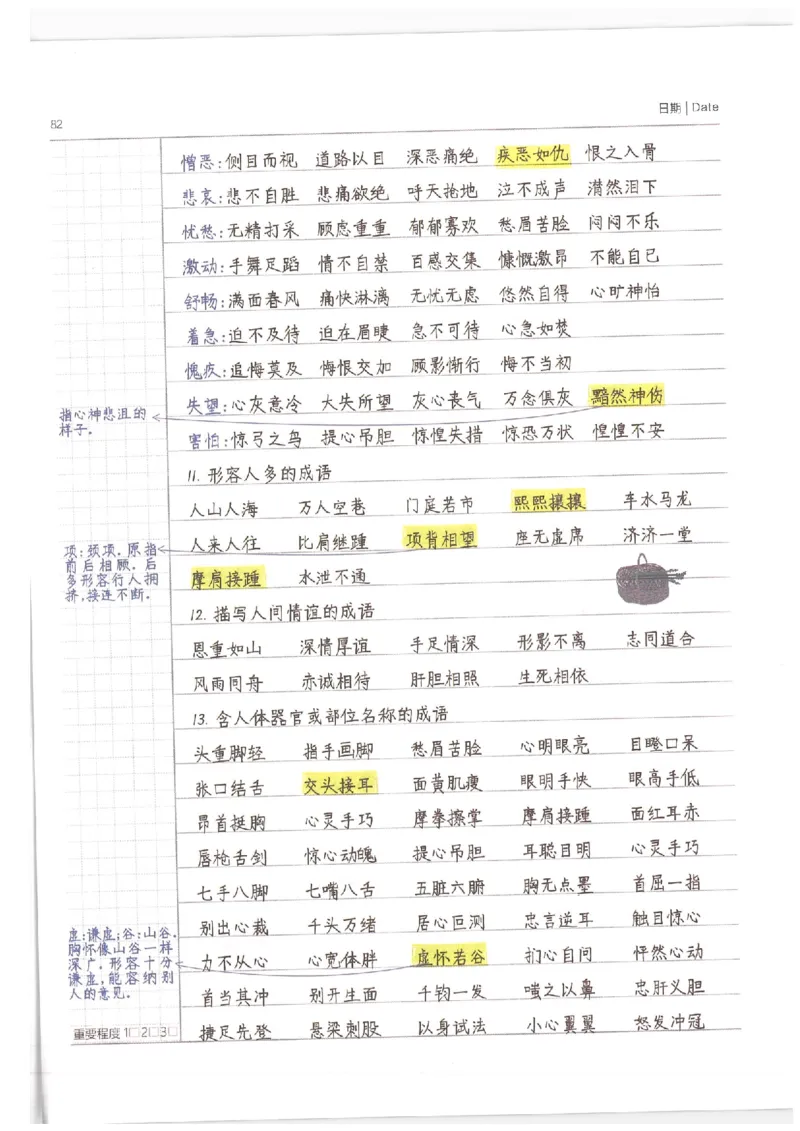 日期 | Date
82
憎恶:侧目而视 道路以目 深恶痛绝 疾恶如仇 恨之入骨
悲哀:悲不自胜 悲痛欲绝 呼天抢地 泣不成声 潸然泪下
忧愁:无精打采 顾虑重重 郁郁寡欢 愁眉苦脸 闷闷不乐
激动:手舞足蹈 情不自禁 百感交集 慷慨激昂 不能自已
舒畅:满面春风 痛快淋漓 无忧无虑 悠然自得 心旷神怡
着急:迫不及待 迫在眉睫 急不可待 心急如焚
愧疚:追悔莫及 悔恨交加 顾影惭行 悔不当初
失望:心灰意冷 大失所望 灰心丧气 万念俱灰 黯然神伤
指心神悲沮的
样子.
害怕:惊弓之鸟 提心吊胆 惊惶失措 惊恐万状 惶惶不安
11. 形容人多的成语
人山人海 万人空巷 门庭若市 熙熙攘攘 车水马龙
人来人往 比肩继踵 项背相望 座无虚席 济济一堂
项:颈项.原指
前后相顾.后
多形容行人拥
挤,接连不断.
摩肩接踵 水泄不通
12. 描写人间情谊的成语
恩重如山 深情厚谊 手足情深 形影不离 志同道合
风雨同舟 赤诚相待 肝胆相照 生死相依
13. 含人体器官或部位名称的成语
头重脚轻 指手画脚 愁眉苦脸 心明眼亮 目瞪口呆
张口结舌 交头接耳 面黄肌瘦 眼明手快 眼高手低
昂首挺胸 心灵手巧 摩拳擦掌 摩肩接踵 面红耳赤
唇枪舌剑 惊心动魄 提心吊胆 耳聪目明 心灵手巧
七手八脚 七嘴八舌 五脏六腑 胸无点墨 首屈一指
别出心裁 千头万绪 居心叵测 忠言逆耳 触目惊心
力不从心 心宽体胖 虚怀若谷 扪心自问 怦然心动
虚:谦虚;谷:山谷.
胸怀像山谷一样
深广.形容十分
谦虚,能容纳别
人的意见.
首当其冲 别开生面 千钧一发 嗤之以鼻 忠肝义胆
捷足先登 悬梁刺股 以身试法 小心翼翼 怒发冲冠
重要程度 1□ 2□ 3□